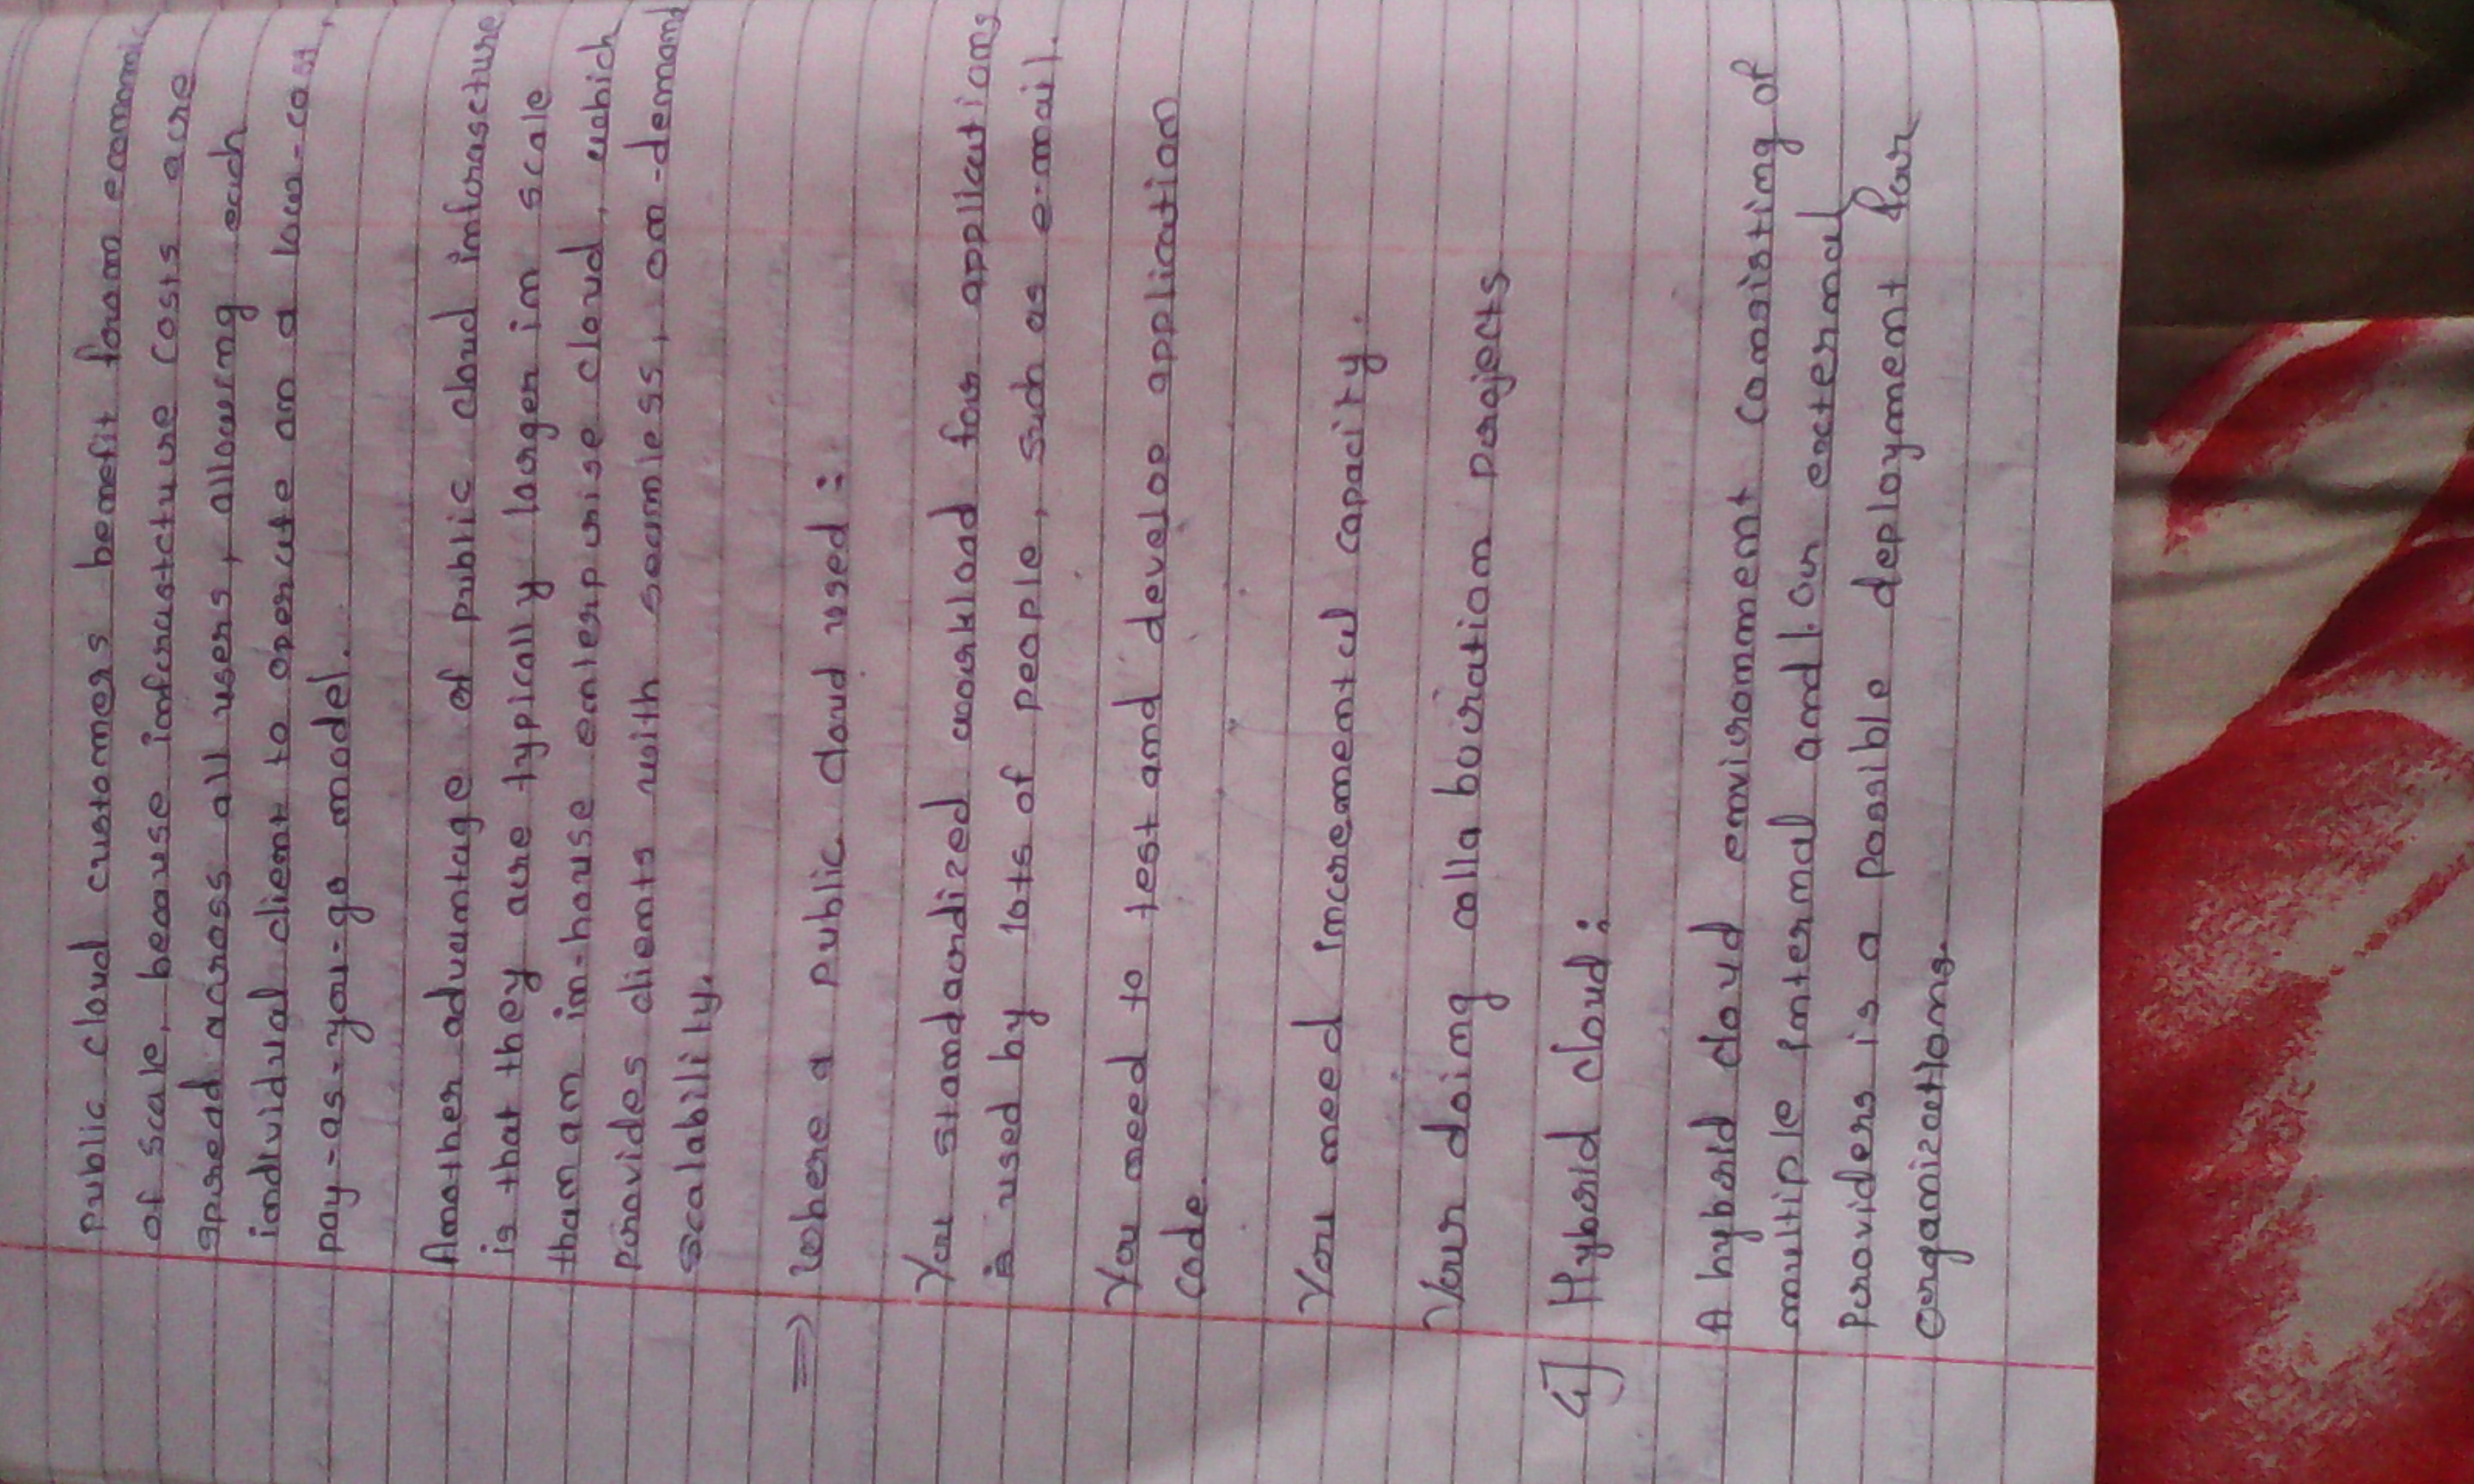 public cloud customers benefit from economic
of scale, because infrastcture costs are
spread across all users, allowing each
individual client to operate on a low-cost,
pay-as-you-go model.
Another advantage of public cloud infrascture
is that they are typically larger in scale
than an in-house enterprise cloud, which
provides clients with seamless, on-demand
scalability.
⇒ Where a public cloud used :
You standardized workload for applications
is used by lots of people, such as e-mail.
You need to test and develop application
code.
You need incremental capacity.
Your doing colla boration projects
4] Hybrid cloud :
A hybrid cloud environment consisting of
multiple internal and/or external
Providers is a possible deployment for
organizations.